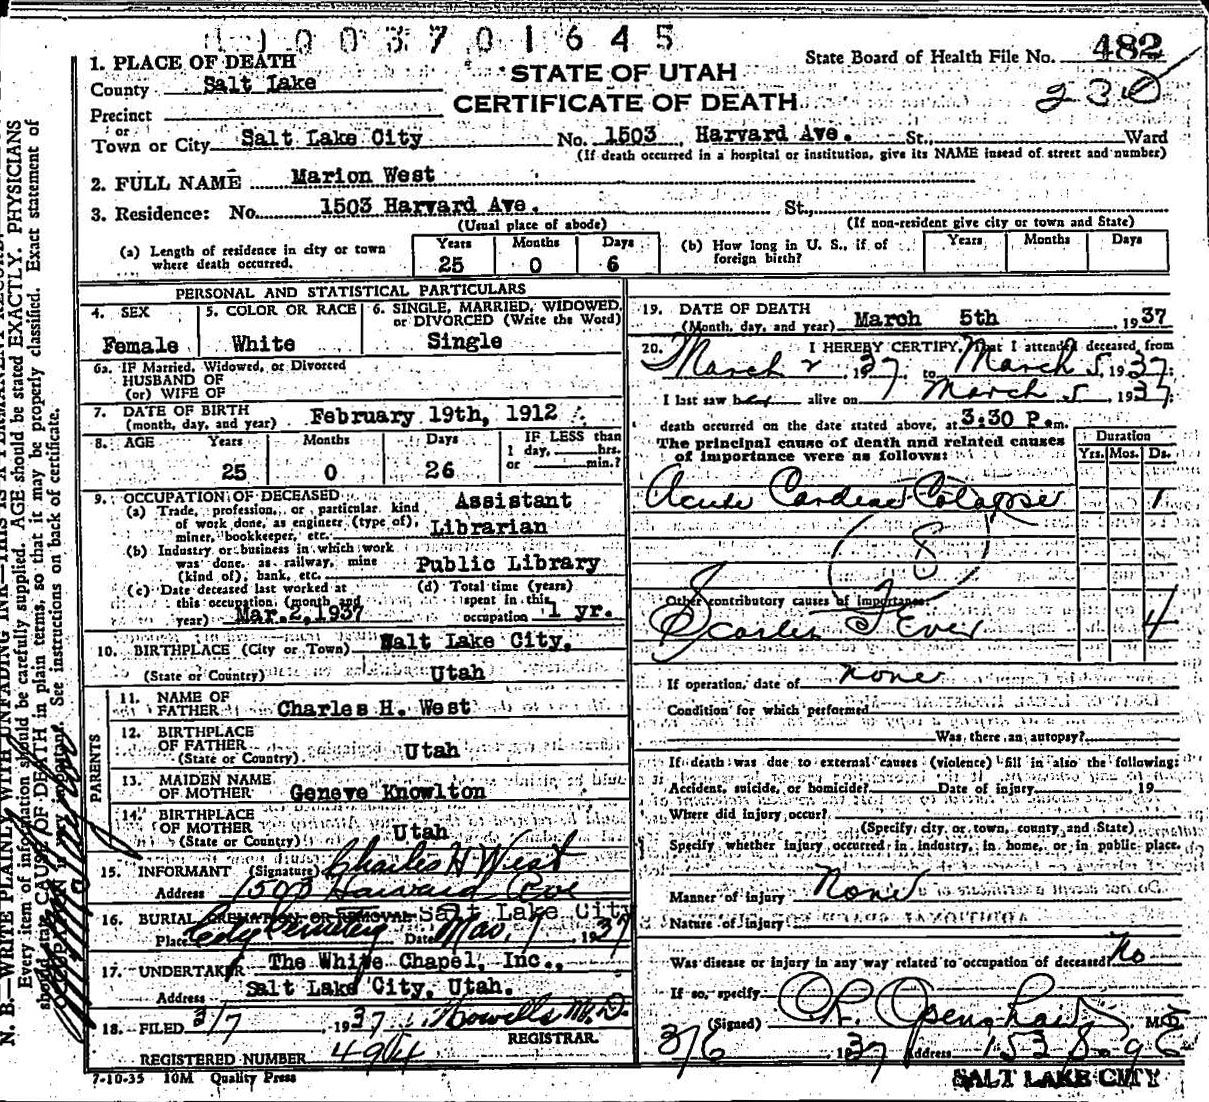 1003701645
State Board of Health File No. 482
230
STATE OF UTAH
CERTIFICATE OF DEATH
1. PLACE OF DEATH
County Salt Lake
Precinct
or
Town or City Salt Lake City No. 1503 Harvard Ave. St., Ward
(If death occurred in a hospital or institution, give its NAME insead of street and number)
2. FULL NAME Marion West
3. Residence: No. 1503 Harvard Ave. St.,
(Usual place of abode) (If non-resident give city or town and State)
(a) Length of residence in city or town where death occurred. Years 25 Months 0 Days 6
(b) How long in U. S., if of foreign birth? Years Months Days
PERSONAL AND STATISTICAL PARTICULARS
4. SEX Female
5. COLOR OR RACE White
6. SINGLE, MARRIED, WIDOWED, or DIVORCED (Write the Word) Single
6a. IF Married, Widowed, or Divorced
HUSBAND OF
(or) WIFE OF
7. DATE OF BIRTH
(month, day, and year) February 19th, 1912
8. AGE Years 25 Months 0 Days 26
IF LESS than
1 day, hrs.
or min.?
9. OCCUPATION OF DECEASED
(a) Trade, profession, or particular kind of work done, as engineer (type of), miner, bookkeeper, etc. Assistant Librarian
(b) Industry or business in which work was done, as railway, mine (kind of), bank, etc. Public Library
(c) Date deceased last worked at this occupation (month and year) Mar. 2, 1937
(d) Total time (years) spent in this occupation 1 yr.
10. BIRTHPLACE (City or Town) Salt Lake City,
(State or Country) Utah
PARENTS
11. NAME OF FATHER Charles H. West
12. BIRTHPLACE OF FATHER
(State or Country) Utah
13. MAIDEN NAME OF MOTHER Geneve Knowlton
14. BIRTHPLACE OF MOTHER
(State or Country) Utah
15. INFORMANT (Signature) Charles H West
Address 1503 Harvard Ave
16. BURIAL, CREMATION OR REMOVAL Salt Lake City
Place City Cemetery Date Mar. 7, 1937
17. UNDERTAKER The White Chapel, Inc.,
Address Salt Lake City, Utah.
18. FILED 3/7, 1937 Howells M.D.
REGISTRAR.
REGISTERED NUMBER 494
7-10-35 10M Quality Press
19. DATE OF DEATH
(Month, day, and year) March 5th, 1937
20. I HEREBY CERTIFY, That I attended deceased from
March 2, 1937 to March 5, 1937;
I last saw her alive on March 5, 1937;
death occurred on the date stated above, at 3:30 P.m.
The principal cause of death and related causes of importance were as follows:
Duration
Yrs. Mos. Ds.
Acute Cardiac Colapse 1
8
Other contributory causes of importance:
Scarlet Fever 4
If operation, date of none
Condition for which performed
Was there an autopsy?
If death was due to external causes (violence) fill in also the following:
Accident, suicide, or homicide? Date of injury 19
Where did injury occur?
(Specify city or town, county and State)
Specify whether injury occurred in industry, in home, or in public place.
Manner of injury None
Nature of injury
Was disease or injury in any way related to occupation of deceased? No
If so, specify
(Signed) M.D.
3/6, 1937 Address
SALT LAKE CITY
N. B.—WRITE PLAINLY WITH UNFADING INK—THIS IS A PERMANENT RECORD.
Every item of information should be carefully supplied. AGE should be stated EXACTLY. PHYSICIANS
should state CAUSE OF DEATH in plain terms, so that it may be properly classified. Exact statement of
OCCUPATION is very important. See instructions on back of certificate.